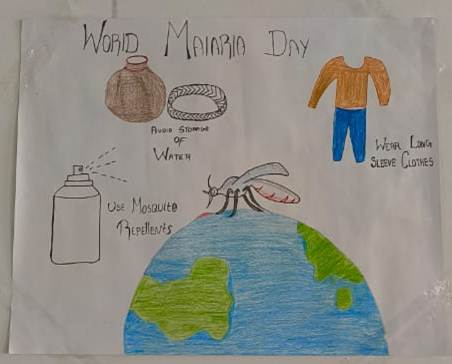 WORLD MALARIA DAY
AVOID STORAGE
OF
WATER
WEAR LONG
SLEEVE CLOTHES
USE MOSQUITO
REPELLENTS